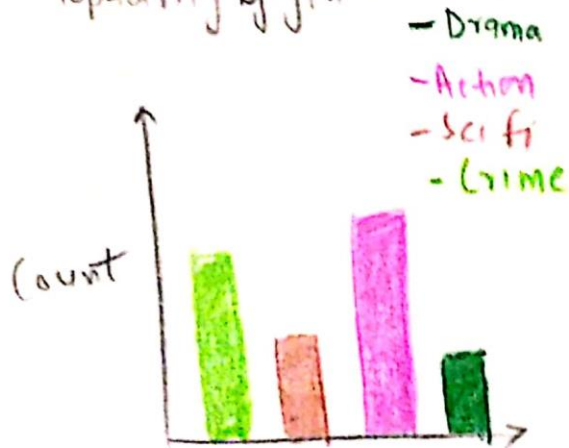 by
- Drama
- Action
- Sci fi
- Crime
Count